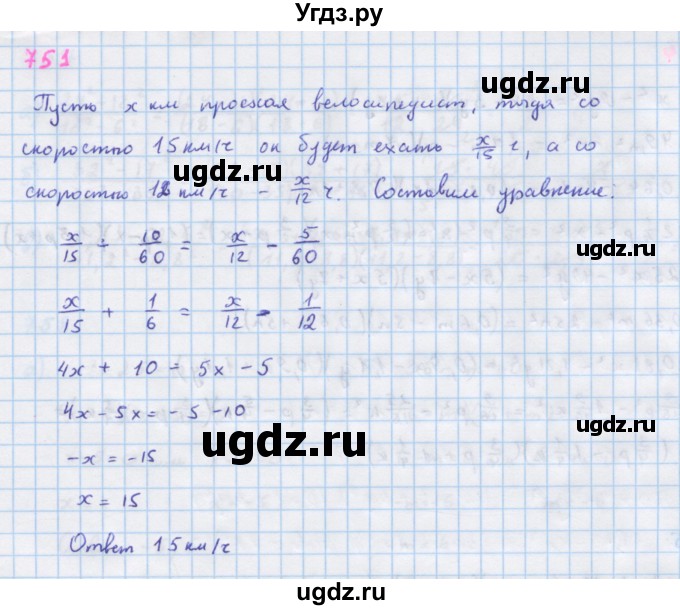 Угдз.ру
751
Пусть x км проехал велосипедист, тогда со
скоростью 15 км/ч он будет ехать x/15 ч, а со
скоростью 12 км/ч - x/12 ч. Составим уравнение:
x/15 + 10/60 = x/12 - 5/60
x/15 + 1/6 = x/12 - 1/12
4x + 10 = 5x - 5
4x - 5x = - 5 - 10
-x = -15
x = 15
Ответ 15 км/ч
ugdz.ru
ugdz.ru
ugdz.ru
ugdz.ru
ugdz.ru
ugdz.ru
ugdz.ru
ugdz.ru